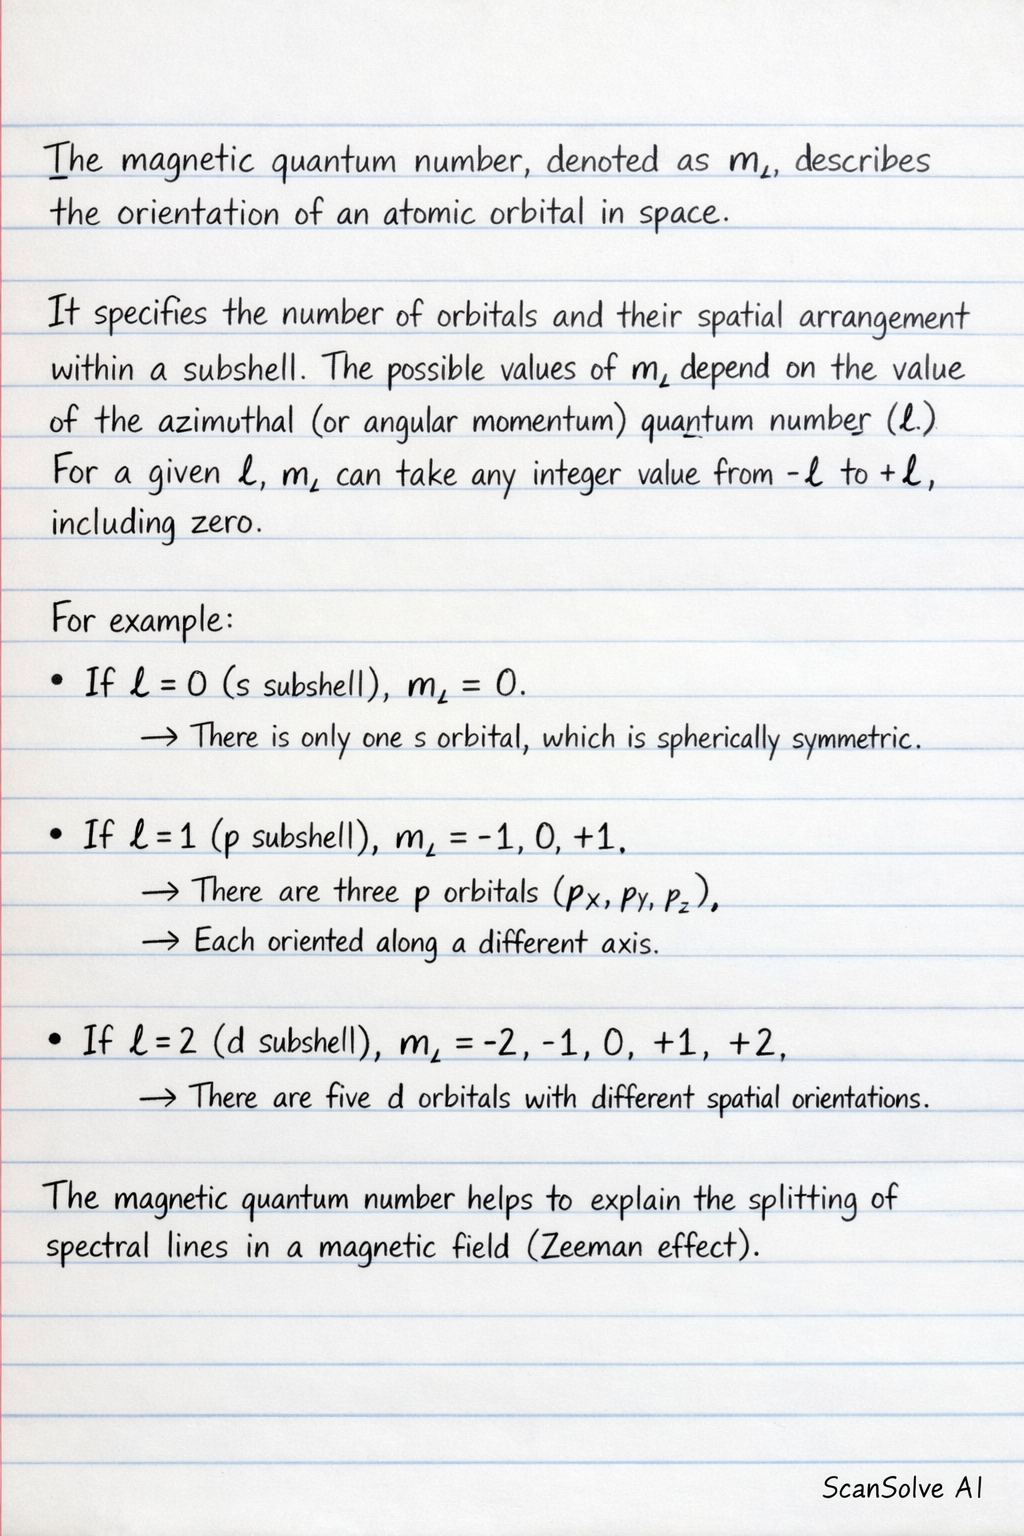 The magnetic quantum number, denoted as mₗ, describes
the orientation of an atomic orbital in space.
It specifies the number of orbitals and their spatial arrangement
within a subshell. The possible values of mₗ depend on the value
of the azimuthal (or angular momentum) quantum number (ℓ.)
For a given ℓ, mₗ can take any integer value from -ℓ to +ℓ,
including zero.
For example:
• If ℓ = 0 (s subshell), mₗ = 0.
→ There is only one s orbital, which is spherically symmetric.
• If ℓ = 1 (p subshell), mₗ = -1, 0, +1.
→ There are three p orbitals (pₓ, py, p_z),
→ Each oriented along a different axis.
• If ℓ = 2 (d subshell), mₗ = -2, -1, 0, +1, +2,
→ There are five d orbitals with different spatial orientations.
The magnetic quantum number helps to explain the splitting of
spectral lines in a magnetic field (Zeeman effect).
ScanSolve AI